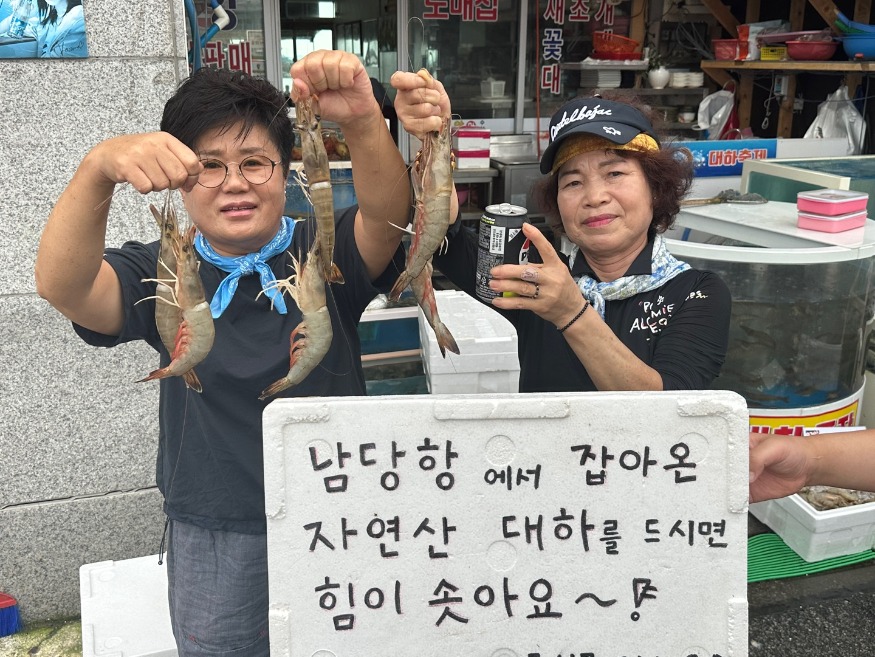 도매집
새조개
꽃
대
판매
대하축제
남당항에서 잡아온
자연산 대하를 드시면
힘이 솟아요~